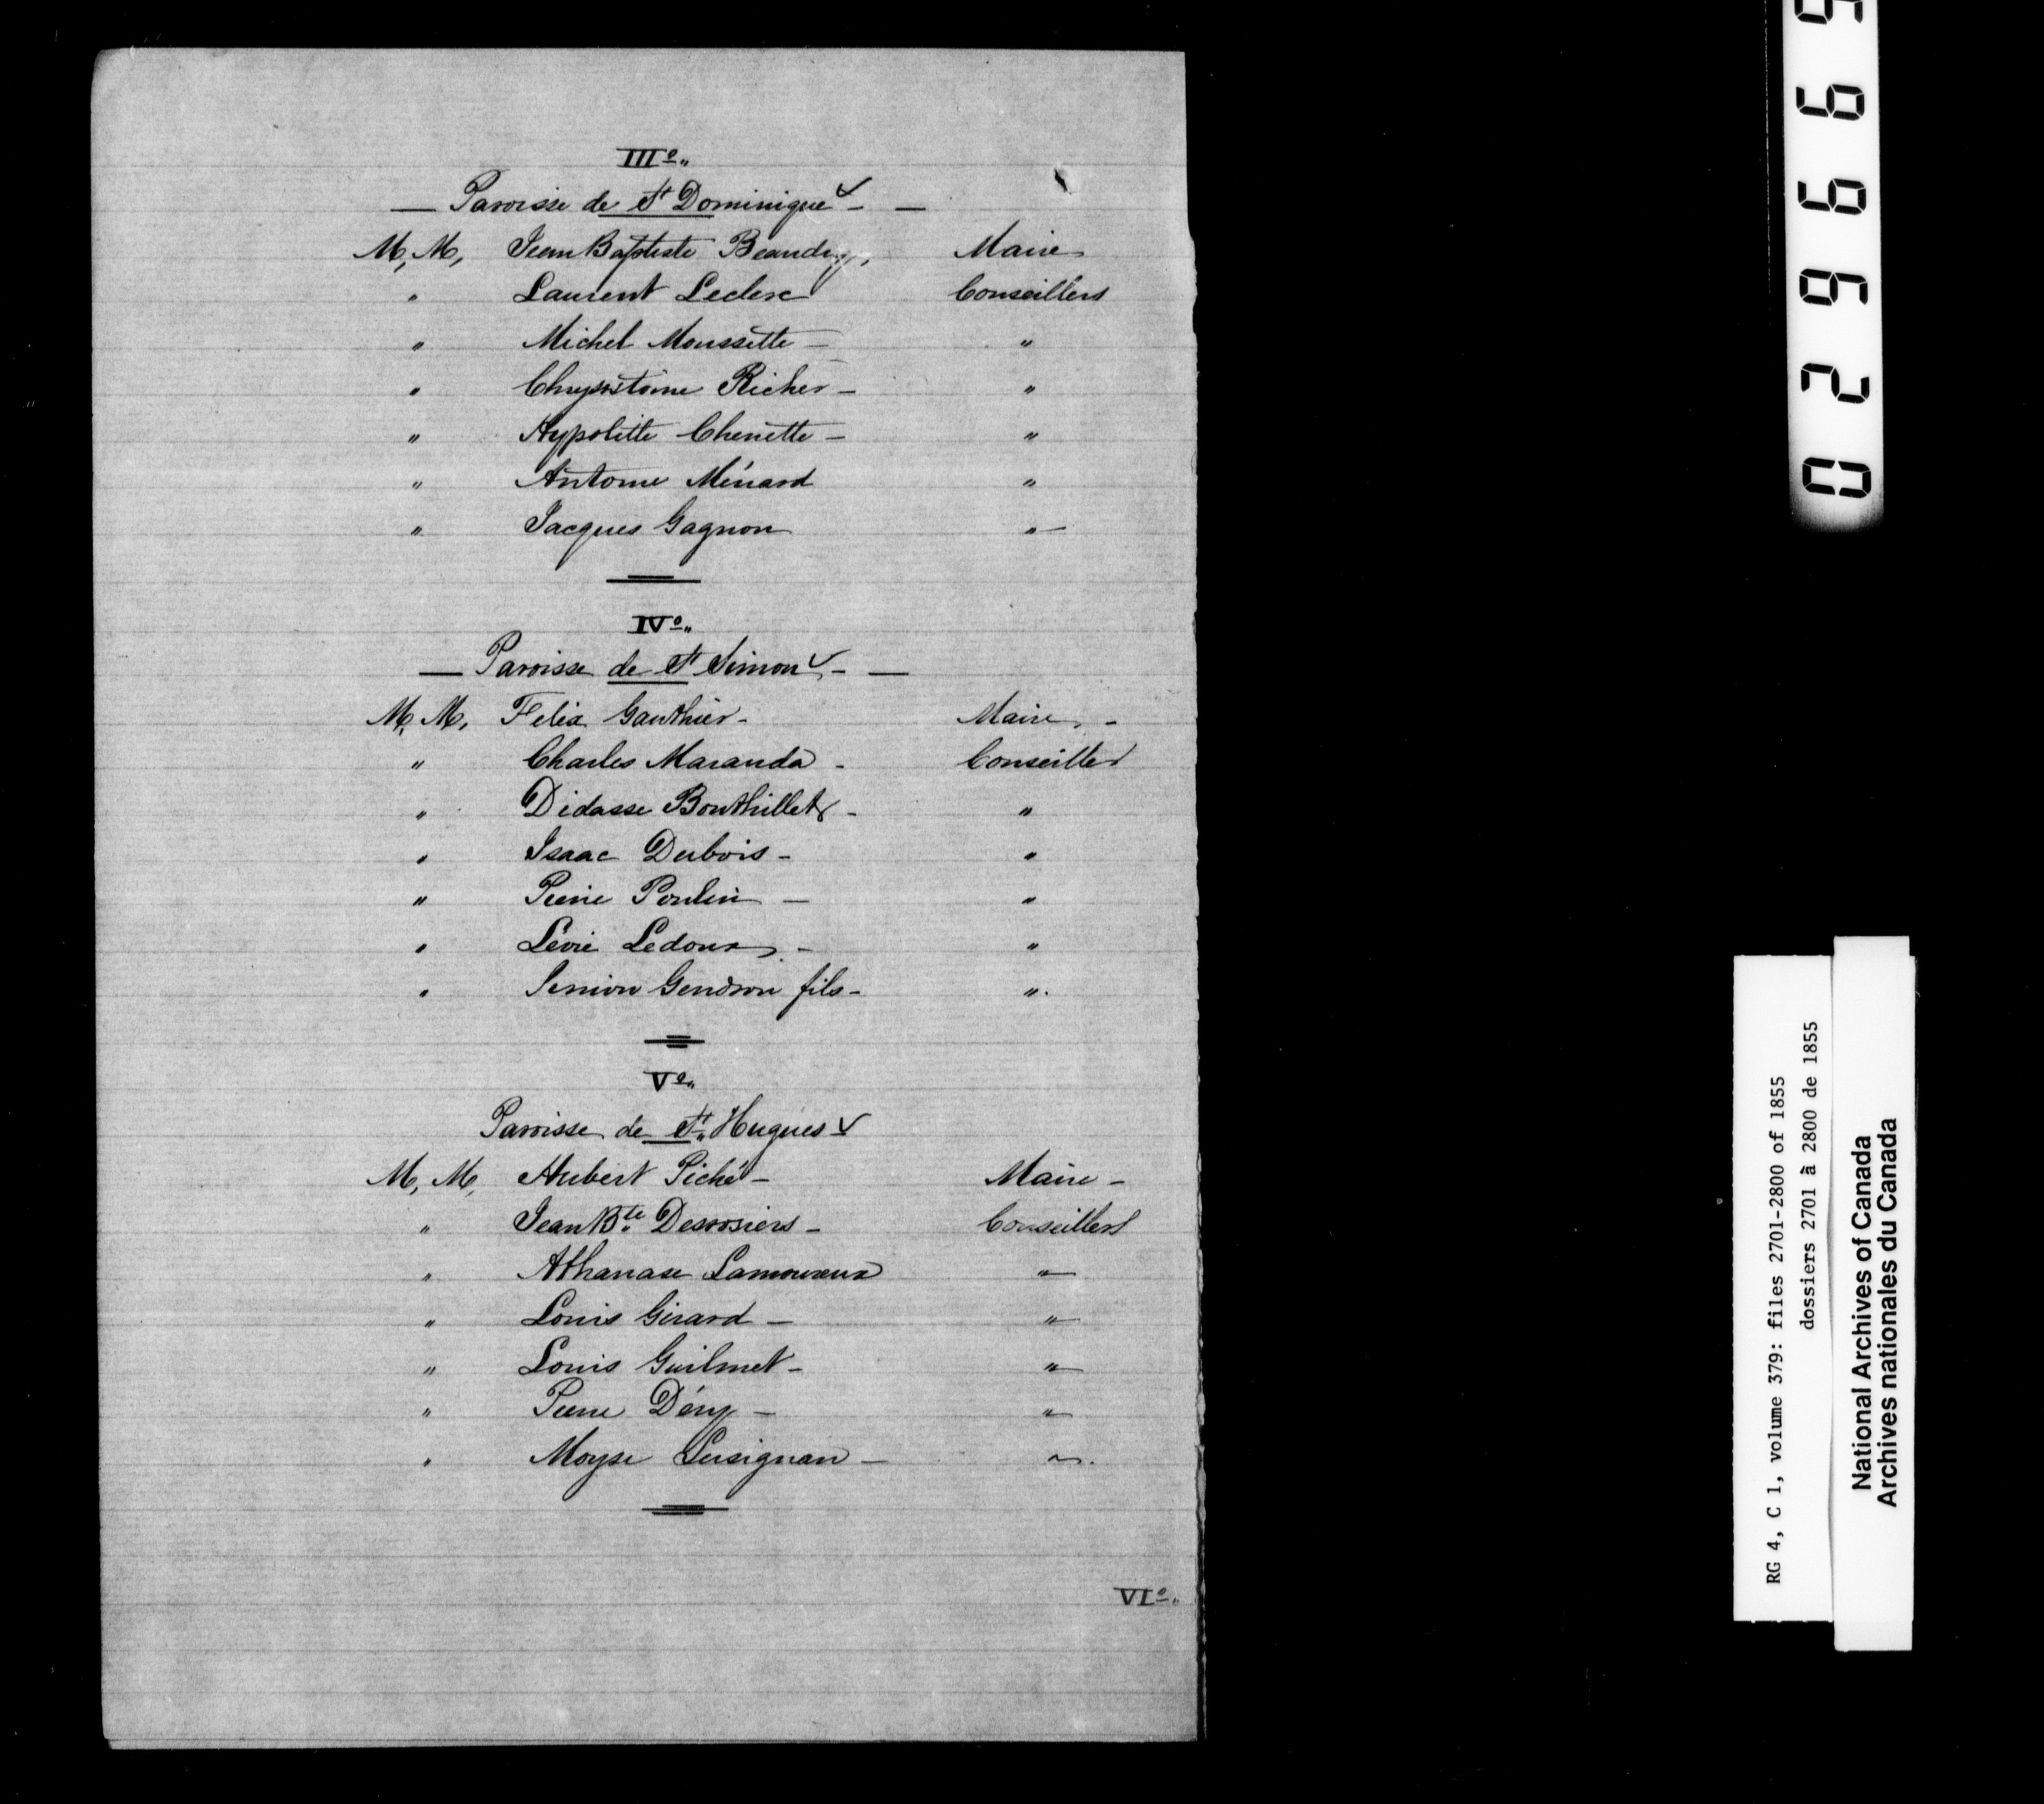 IIIº"
— Paroisse de St Dominique — —
M, M, Jean Baptiste Beaudry, Maire
" Laurent Leclerc Conseillers
" Michel Moussette — "
" Chrysostôme Richer — "
" Hypolitte Chenette — "
" Antoine Ménard "
" Jacques Gagnon " —
IVº"
— Paroisse de St Simon — —
M, M, Felix Gauthier - Maire -
" Charles Maranda - Conseiller
" Didasse Bouthillet - "
" Isaac Dubois - "
" Pierre Poulin — "
" Lévie Ledoux - "
" Simion Gendron fils - "
Vº"
Paroisse de St Hugues
M, M, Hubert Piché - Maire -
" Jean Bte Desrosiers - Conseillers
" Athanase Lamoureux "
" Louis Girard — "
" Louis Guilmet - "
" Pierre Déry — "
" Moyse Lusignan — "
VIº"
02966
RG 4, C 1, volume 379: files 2701-2800 of 1855
dossiers 2701 à 2800 de 1855
National Archives of Canada
Archives nationales du Canada